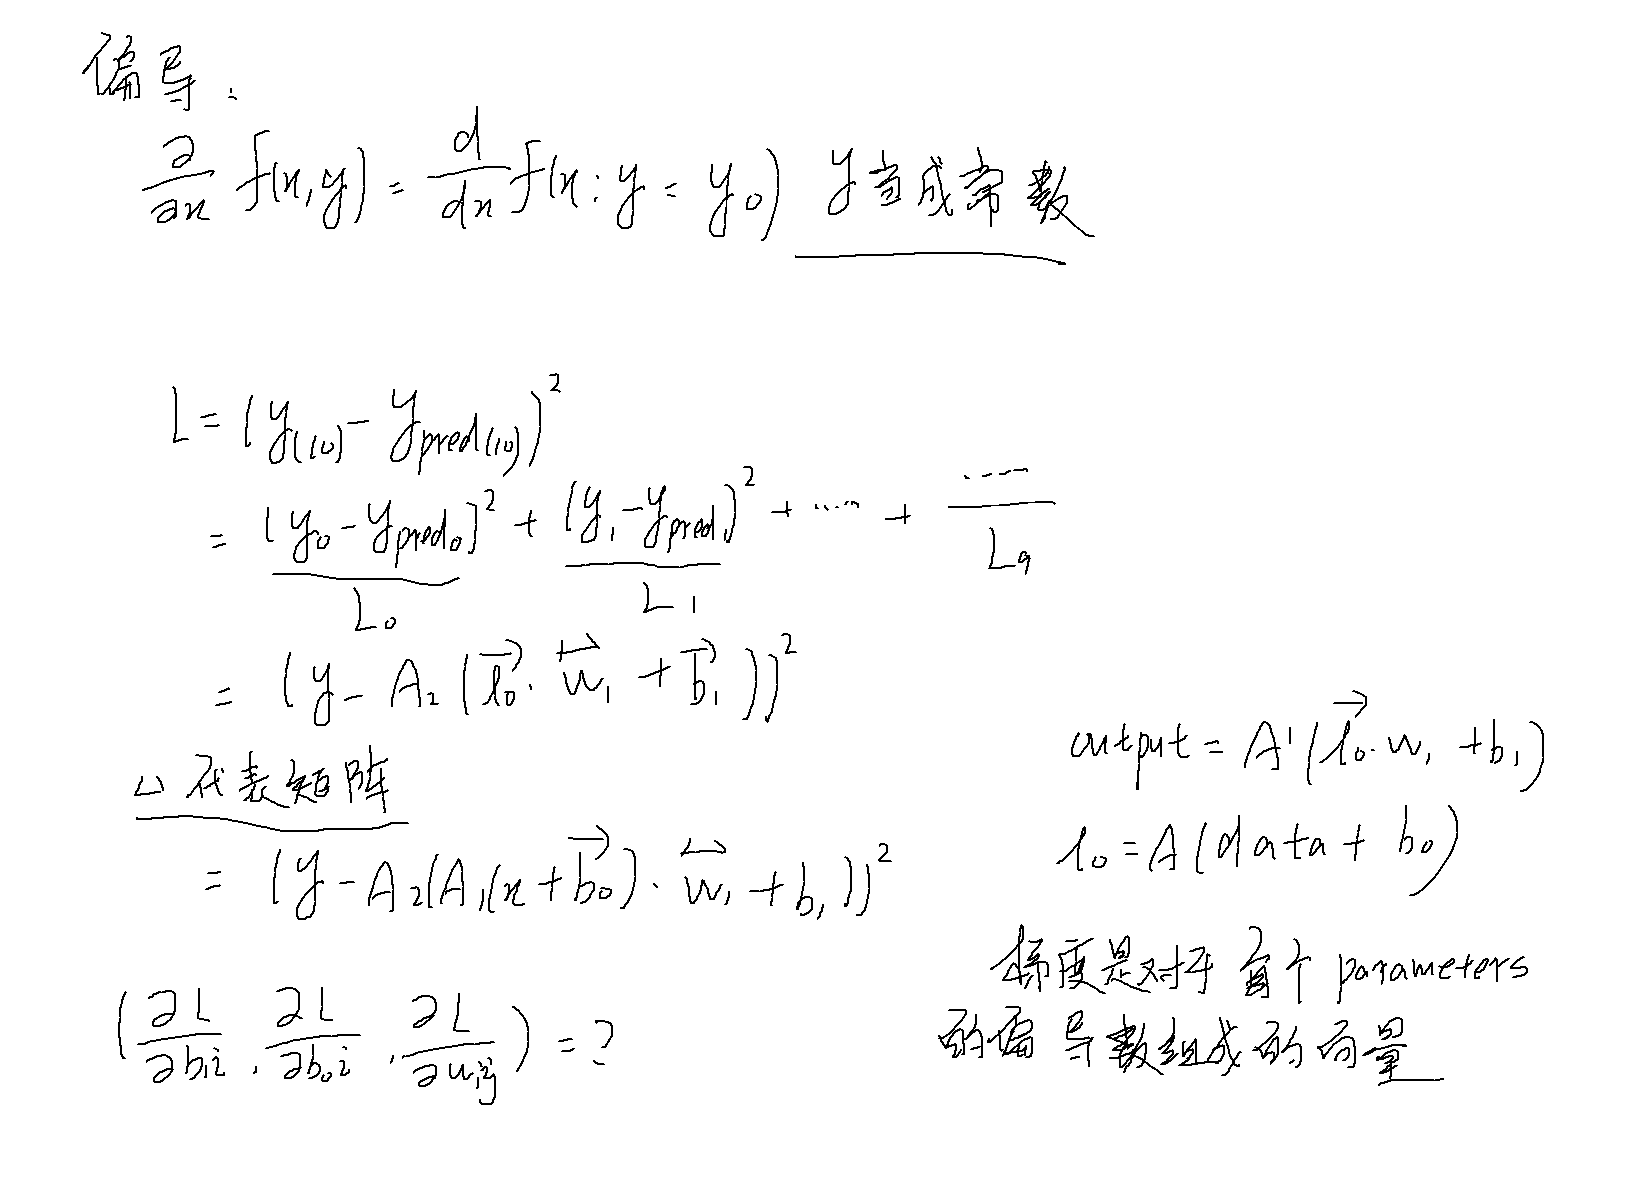 偏导:
∂/∂x f(x,y) = d/dx f(x: y = y₀) y当成常数
L = (y(10) - ypred(10))²
= (y₀ - ypred₀)² + (y₁ - ypred₁)² + ...... + ......
L₀ L₁ L₉
= (y - A₂(l₀→ · w₁↔ + b₁→))²
↔ 代表矩阵
= (y - A₂(A₁(x + b₀→) · w₁↔ + b₁))²
(∂L/∂b₁i, ∂L/∂b₀i, ∂L/∂w₁ij) = ?
output = A'(l₀→ · w₁ + b₁)
l₀ = A(data + b₀)
梯度是对于 每个 parameters
的偏导数组成的向量